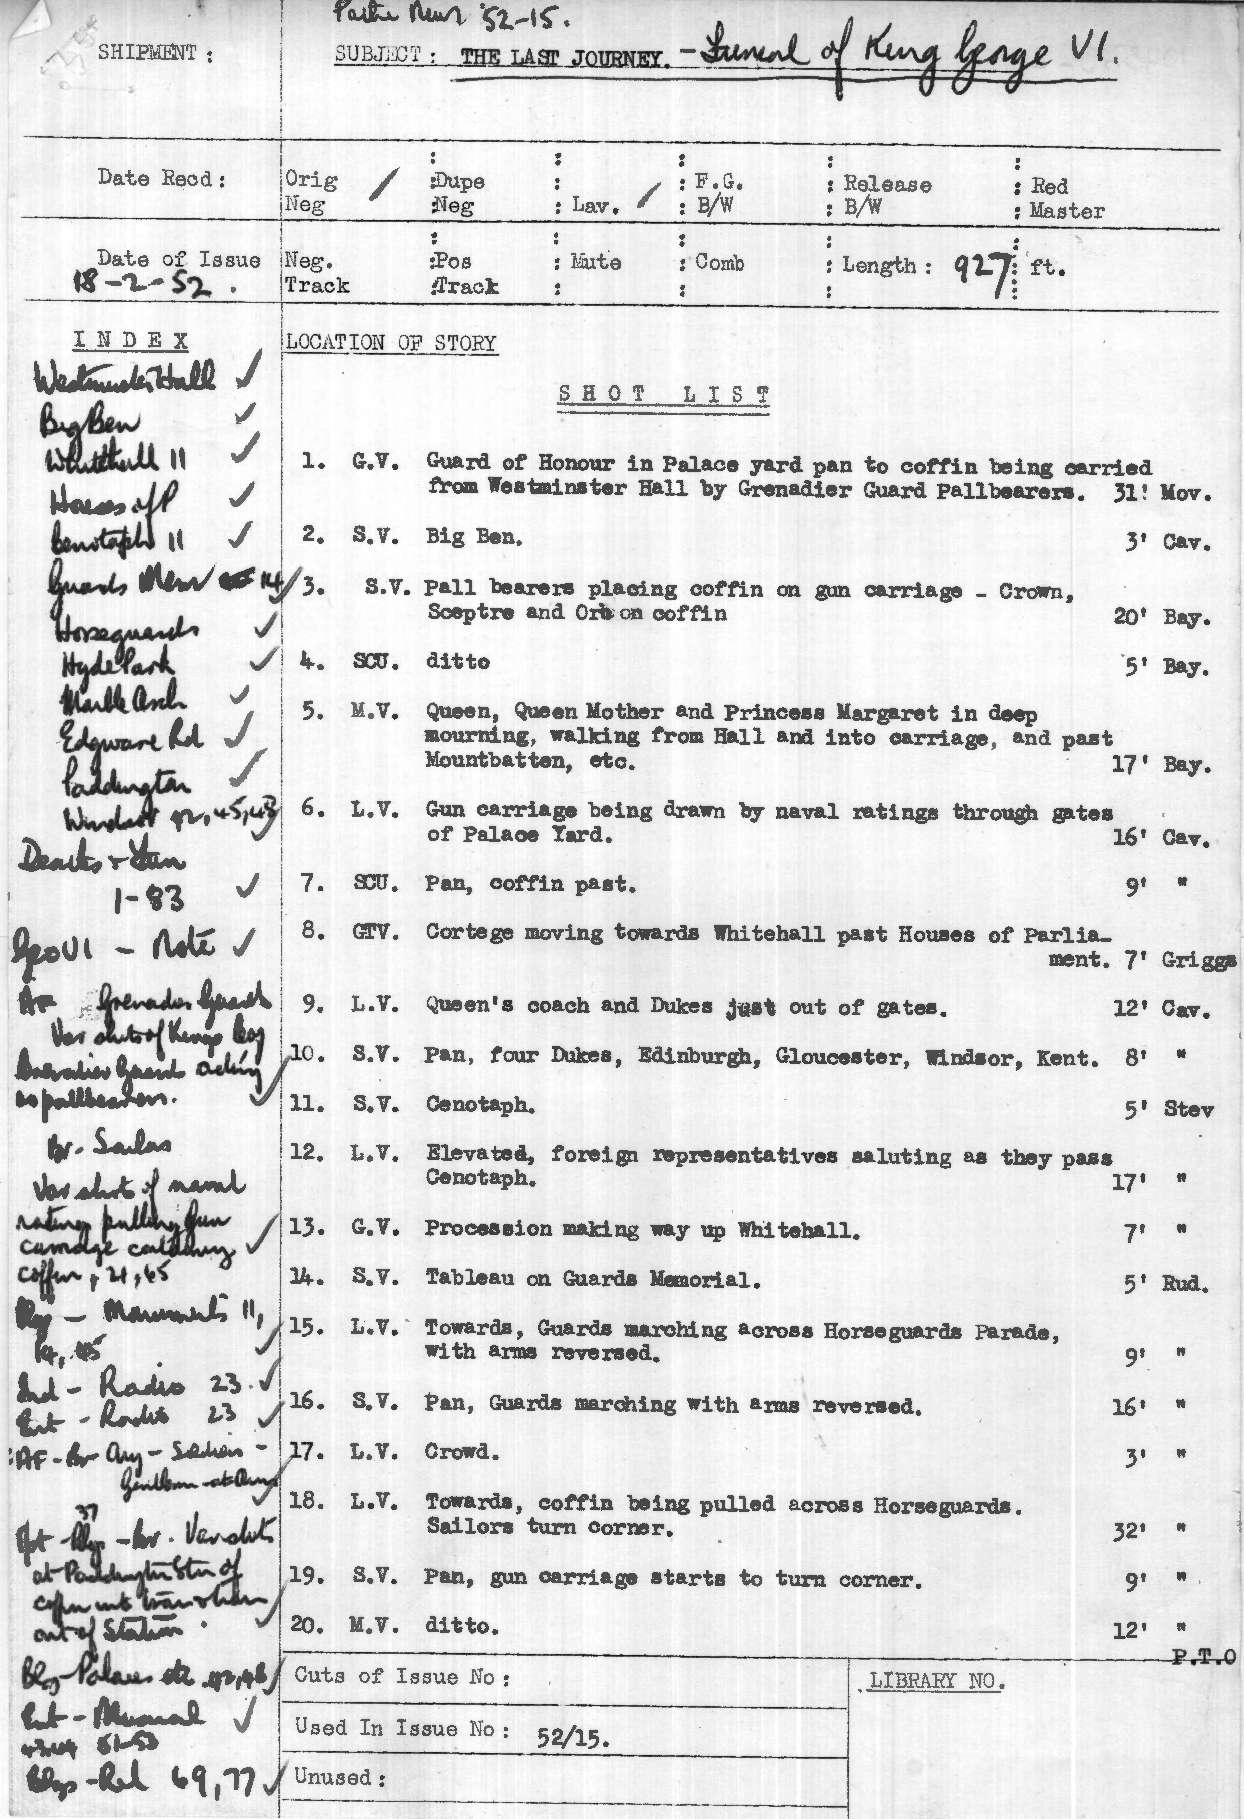 Pathe News '52-15.
SHIPMENT :
SUBJECT : THE LAST JOURNEY. - Funeral of King George VI.
Date Recd :
Orig Neg
Dupe Neg
Lav.
F.G. B/W
Release B/W
Red Master
Date of Issue
18-2-52.
Neg. Track
Pos Track
Mute
Comb
Length : 927 ft.
INDEX
Westminster Hall ✓
Big Ben ✓
Whitehall 11 ✓
Houses of P ✓
Cenotaph 11 ✓
Guards Mem 14 ✓
Horseguards ✓
Hyde Park ✓
Marble Arch ✓
Edgware Rd ✓
Paddington ✓
Windsor 42, 45, 43
Deaths & Fun
1-83 ✓
Geo VI - Note ✓
AF Grenadier Guards
Var shots of Kings
Grenadier Guards acting
as pallbearers. ✓
Br. Sailors
Var shots of naval
ratings pulling gun
carriage containing ✓
coffin, 21, 65
Blgs - Monuments 11,
14, 45 ✓
Ind - Radio 23. ✓
Ent - Radio 23 ✓
AF - Br Army -
Gentlemen-at-Arms
37
Var shots
at Paddington Stn of
coffin into train & train
out of Station. ✓
Blgs - Palaces etc 42, 43 ✓
Ent - Musical ✓
51-53
Blgs - Rel 69, 77 ✓
LOCATION OF STORY
SHOT LIST
1. G.V. Guard of Honour in Palace yard pan to coffin being carried
from Westminster Hall by Grenadier Guard Pallbearers. 31' Mov.
2. S.V. Big Ben. 3' Cav.
3. S.V. Pall bearers placing coffin on gun carriage - Crown,
Sceptre and Orb on coffin 20' Bay.
4. SCU. ditto 5' Bay.
5. M.V. Queen, Queen Mother and Princess Margaret in deep
mourning, walking from Hall and into carriage, and past
Mountbatten, etc. 17' Bay.
6. L.V. Gun carriage being drawn by naval ratings through gates
of Palace Yard. 16' Cav.
7. SCU. Pan, coffin past. 9' "
8. GTV. Cortege moving towards Whitehall past Houses of Parlia-
ment. 7' Griggs
9. L.V. Queen's coach and Dukes just out of gates. 12' Cav.
10. S.V. Pan, four Dukes, Edinburgh, Gloucester, Windsor, Kent. 8' "
11. S.V. Cenotaph. 5' Stev
12. L.V. Elevated, foreign representatives saluting as they pass
Cenotaph. 17' "
13. G.V. Procession making way up Whitehall. 7' "
14. S.V. Tableau on Guards Memorial. 5' Rud.
15. L.V. Towards, Guards marching across Horseguards Parade,
with arms reversed. 9' "
16. S.V. Pan, Guards marching with arms reversed. 16' "
17. L.V. Crowd. 3' "
18. L.V. Towards, coffin being pulled across Horseguards.
Sailors turn corner. 32' "
19. S.V. Pan, gun carriage starts to turn corner. 9' "
20. M.V. ditto. 12' "
P.T.O
Cuts of Issue No :
LIBRARY NO.
Used In Issue No : 52/15.
Unused :